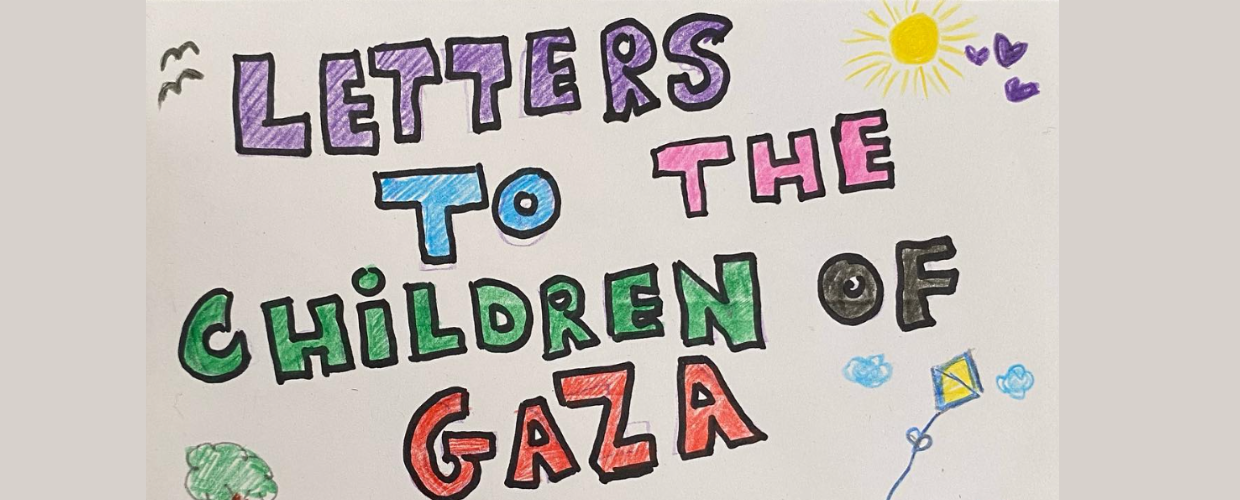 LETTERS
TO THE
CHiLDREN OF
GAZA